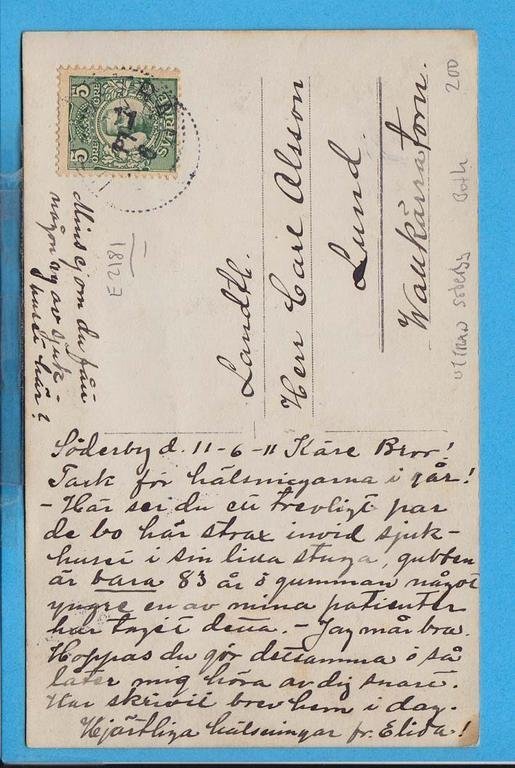 Söderby d. 11-6-11 Käre Bror!
Tack för hälsningarna i går!
- Här ser du ett trevligt par
de bo här strax invid sjuk-
huset i sin lilla stuga, gubben
är bara 83 år o gumman något
yngre en av mina patienter
har tagit detta. - Jag mår bra.
Hoppas du gör detsamma o så
låter mig höra av dig snart.
Har skrivit brev hem i dag.
Hjärtliga hälsningar fr. Elida!
Mins ej om du fått
någon vy av sjuk-
huset här?
Landtb.
Herr Carl Olsson
Lund.
Wallkärratorn.
SVERIGE
5 ÖRE 5
11
18123
Söderby
200